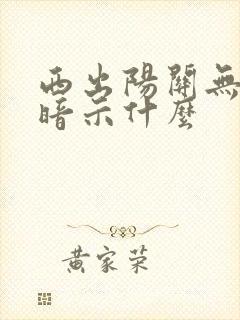 西出陽關無
暗示什麼
黃家荣